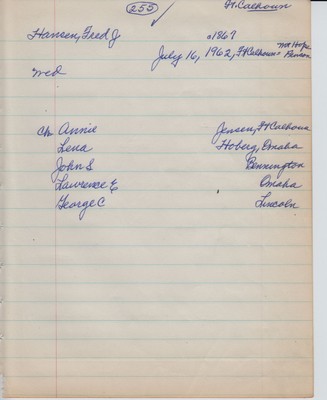 255 Ft. Calhoun
Hansen, Fred J a1867
Mt Hope
July 16, 1962, Ft Calhoun - Benson
wed
ch Annie Jensen, Ft Calhoun
Lena Hoberg, Omaha
John S Bennington
Lawrence E Omaha
George C Lincoln